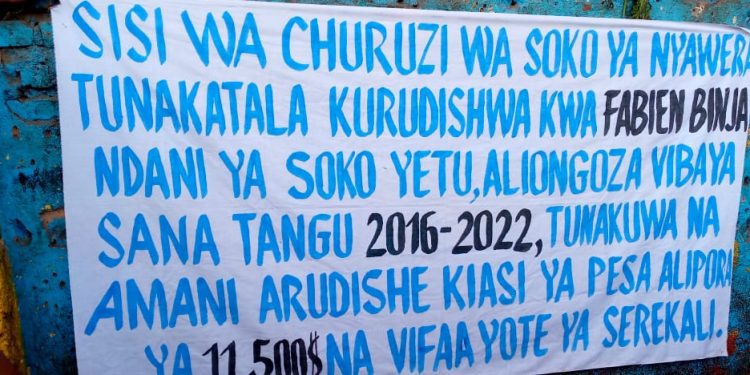 SISI WA CHURUZI WA SOKO YA NYAWERA
TUNAKATALA KURUDISHWA KWA FABIEN BINJA
NDANI YA SOKO YETU, ALIONGOZA VIBAYA
SANA TANGU 2016-2022, TUNAKUWA NA
AMANI ARUDISHE KIASI YA PESA ALIPORA
YA 11,500$ NA VIFAA YOTE YA SEREKALI.